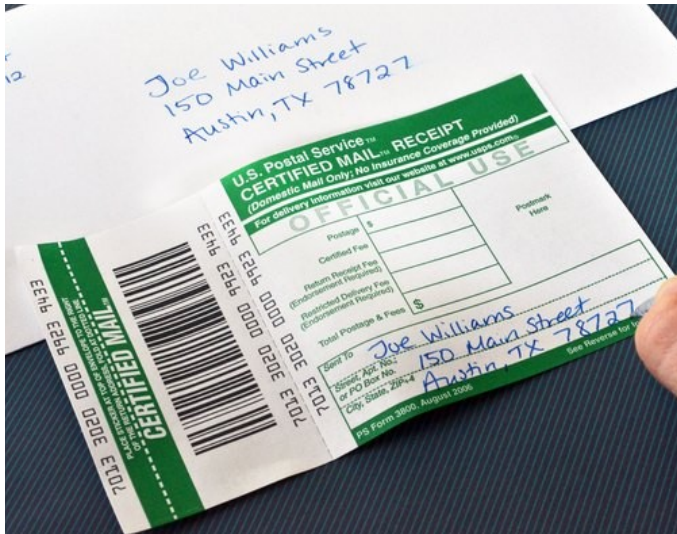 12
Joe Williams
150 Main Street
Austin, TX 78727
U.S. Postal Service™
CERTIFIED MAIL™ RECEIPT
(Domestic Mail Only; No Insurance Coverage Provided)
For delivery information visit our website at www.usps.com®
OFFICIAL USE
Postage $
Certified Fee
Return Receipt Fee
(Endorsement Required)
Restricted Delivery Fee
(Endorsement Required)
Total Postage & Fees $
Postmark
Here
Sent To Joe Williams
Street, Apt. No.;
or PO Box No. 150 Main Street
City, State, ZIP+4 Austin, TX 78727
PS Form 3800, August 2006 See Reverse for
7013 3020 0000 9923 9433
7013 3020 0000 9923 9433
PLACE STICKER AT TOP OF ENVELOPE TO THE RIGHT
OF THE RETURN ADDRESS, FOLD AT DOTTED LINE
CERTIFIED MAIL™
7013 3020 0000 9923 9433